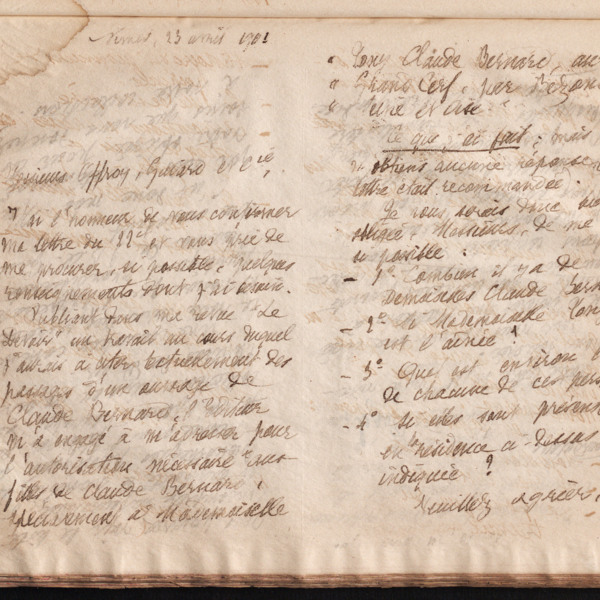 Nîmes, 23 avril 1901
Messieurs Offroy, Guiard et Cie,
J'ai l'honneur de vous confirmer
ma lettre du 22 ct et vous prie de
me procurer, si possible, quelques
renseignements dont j'ai besoin.
Publiant dans ma revue "Le
Devoir" un travail au cours duquel
j'aurais à citer textuellement des
passages d'un ouvrage de
Claude Bernard, l'éditeur
m'a engagé à m'adresser pour
l'autorisation nécessaire aux
filles de Claude Bernard,
et Mademoiselle
" Tony Claude Bernard, au
" Grand Cerf, par
" "
Ce que j'ai fait; mais
n'obtiens aucune réponse
lettre était recommandée.
Je vous serais donc bien
obligée, Messieurs, de me
si possible:
- 1° Combien il y a de
Demoiselles Claude Bern
- 2° Si Mademoiselle Tony
est l'aînée?
- 3° Quel est environ l'
de chacune de ces per
- 4° si elles sont présent
en la résidence ci-dessus
indiquée?
Veuillez agréer,